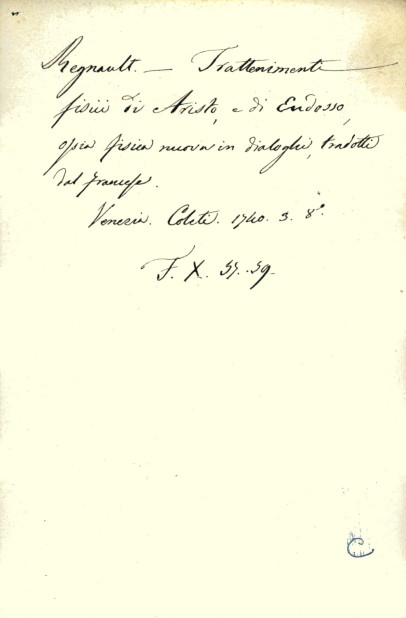 Regnault. — Trattenimenti
fisici di Aristo, e di Eudosso,
ossia fisica nuova in dialoghi, tradotti
dal francese.
Venezia. Coleti. 1740. 3. 8°.
F. X. 57.-59.
C